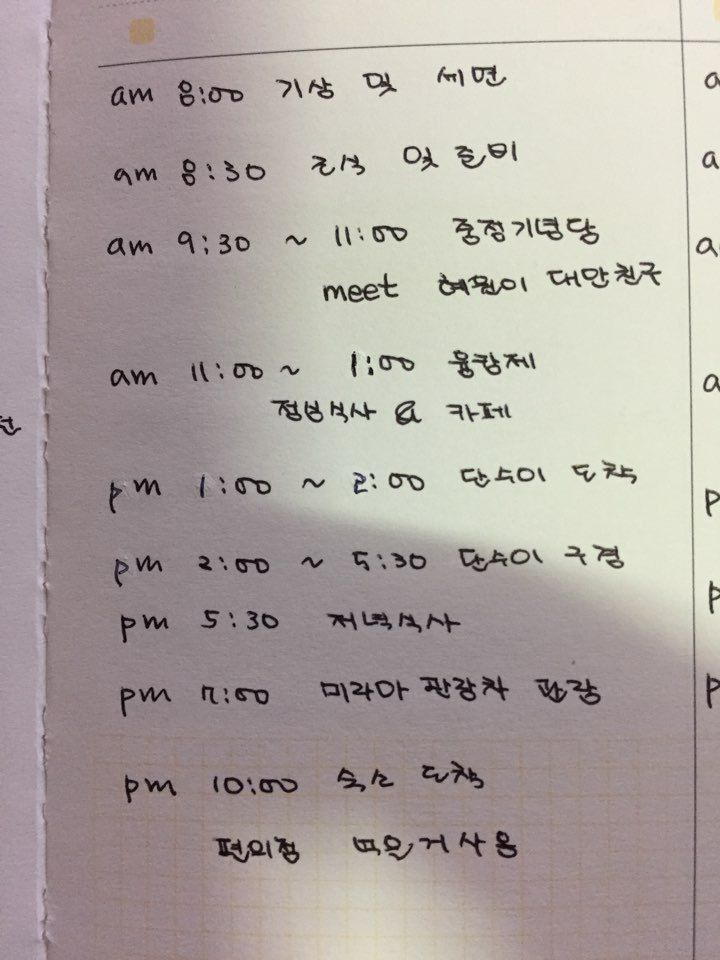 am 8:00 기상 및 세면
am 8:30 조식 및 준비
am 9:30 ~ 11:00 중정기념당
meet 혜원이 대만친구
am 11:00 ~ 1:00 융캉제
점심식사 & 카페
pm 1:00 ~ 2:00 단수이 도착
pm 2:00 ~ 5:30 단수이 구경
pm 5:30 저녁식사
pm 7:00 미라마 관람차 관람
pm 10:00 숙소 도착
편의점 먹을거사옹